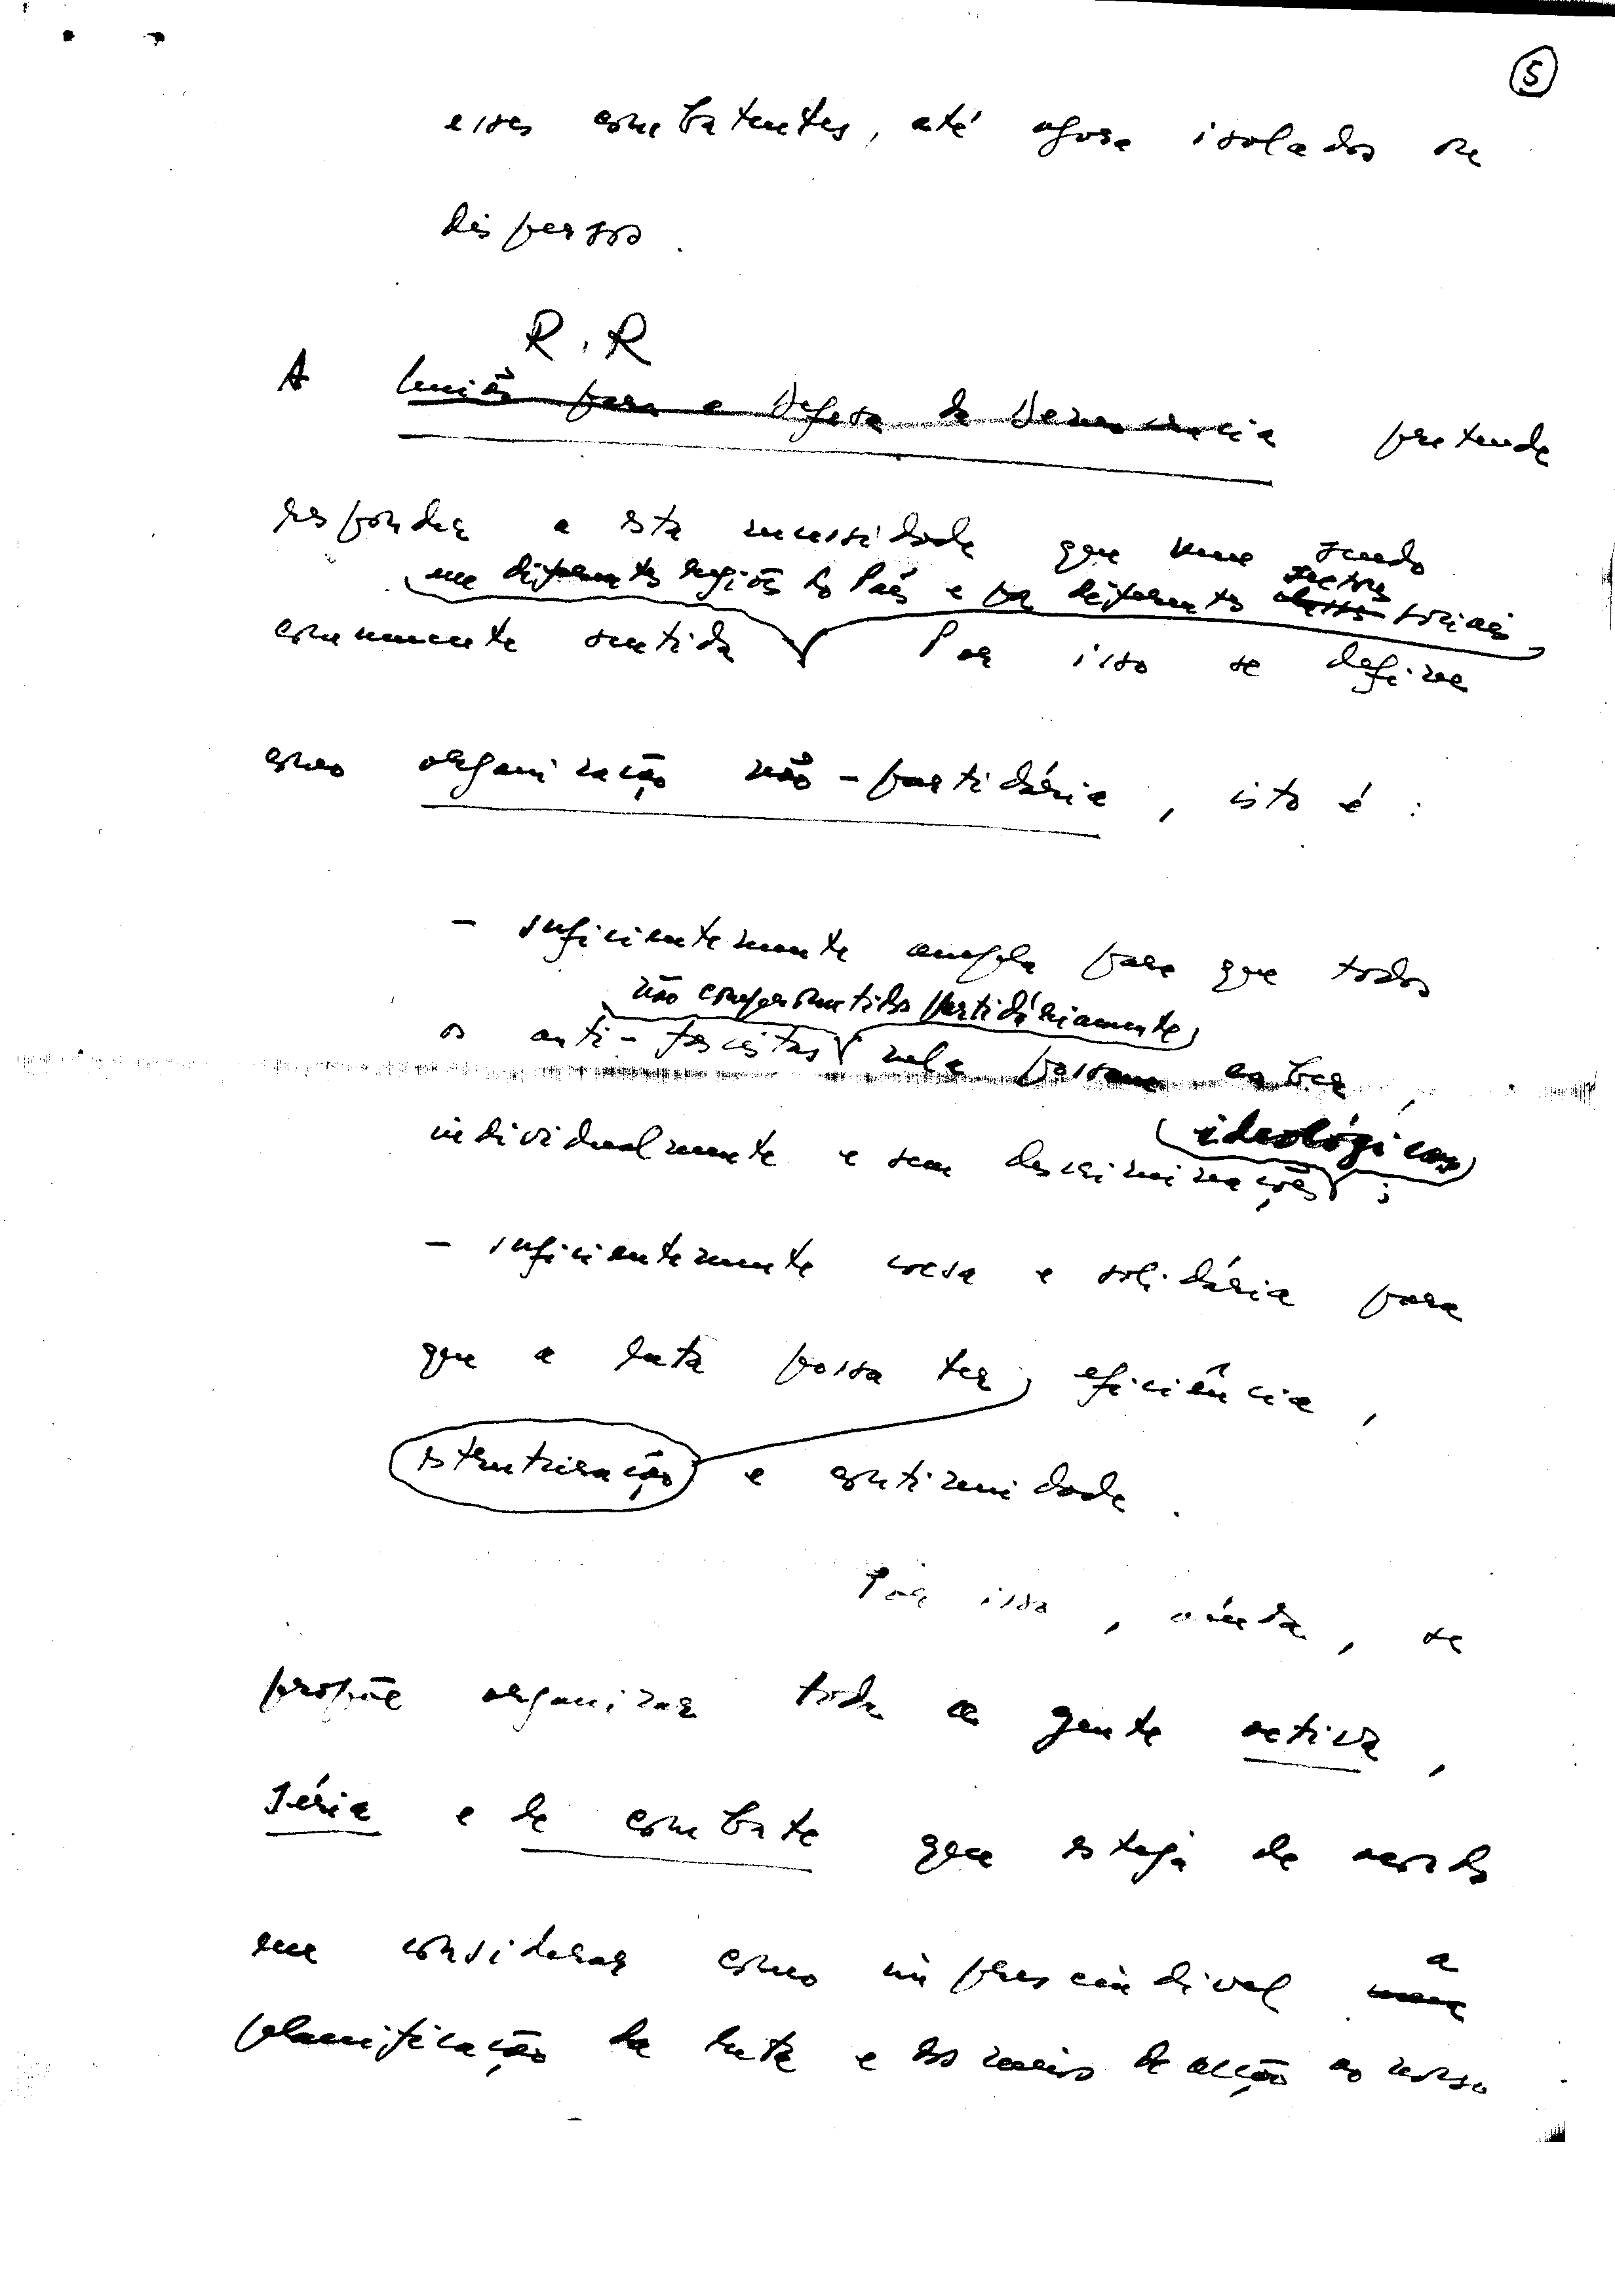 5
esses combatentes, até agora isolados ou
dispersos.
R.R
A União para a Defesa da Democracia pretende
responder a esta necessidade que vem sendo
em diferentes regiões do País e por diferentes classes sectores sociais
comummente sentida Por isso se define
como organização não-partidária, isto é:
- suficientemente ampla para que todos
não comprometidos partidáriamente
os anti-fascistas nela possam caber,
ideológicas
individualmente e sem descriminações;
- suficientemente coesa e solidária para
que a luta possa ter eficiência,
estruturação e continuidade.
Por isso, ainda, se
propõe organizar toda a gente activa,
séria e de combate que esteja de acordo
a
em considerar como imprescindível uma
planificação da luta e dos meios de acção ao nosso